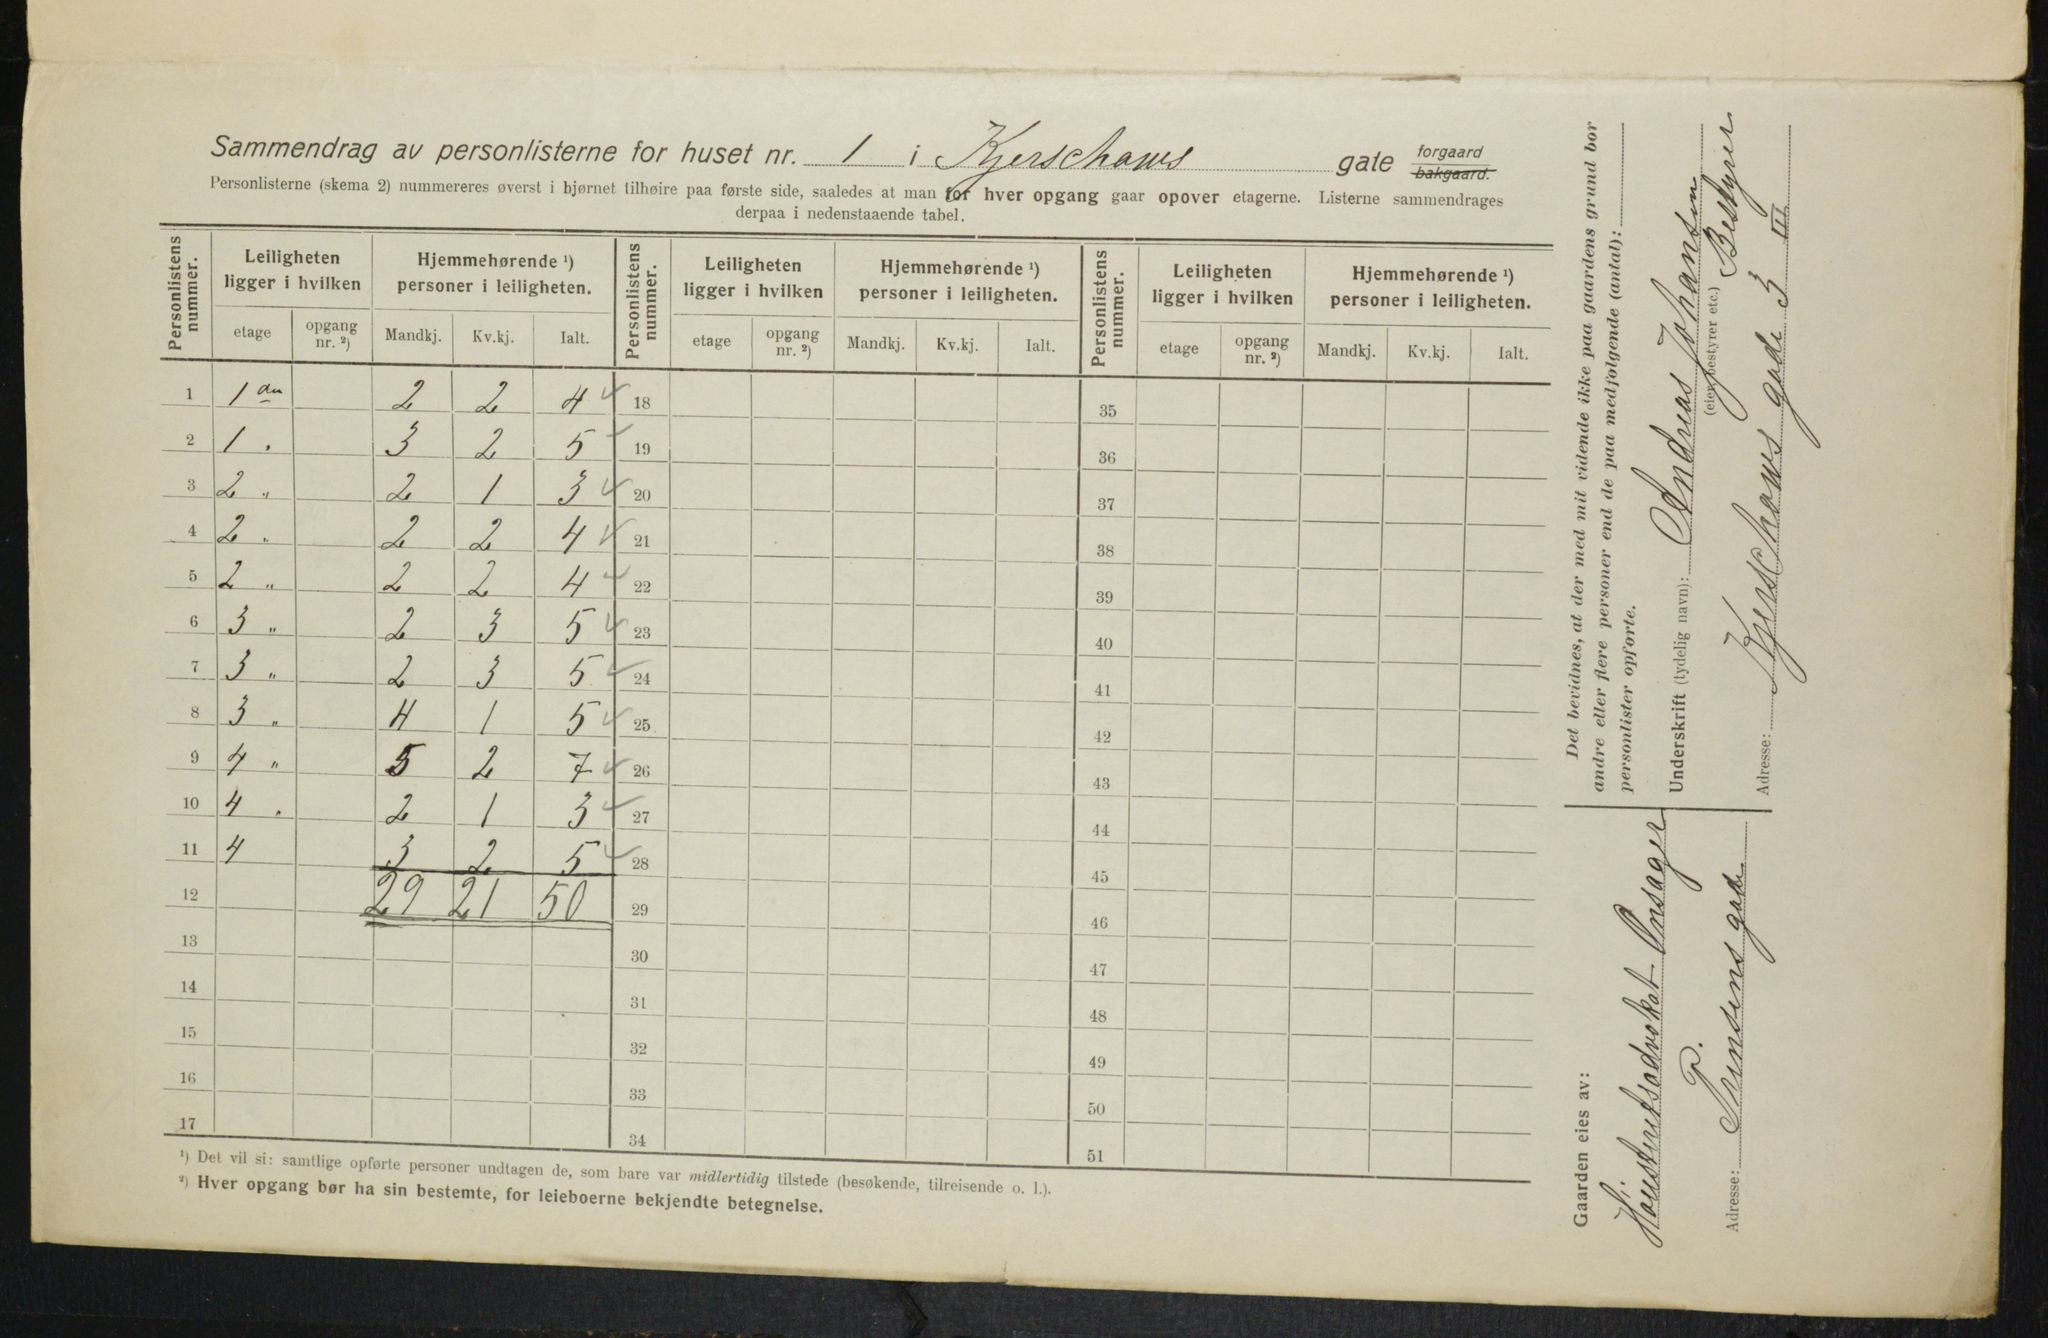 Sammendrag av personlisterne for huset nr. 1 i Kjerschows gate forgaard bakgaard.
Personlisterne (skema 2) nummereres øverst i bjørnet tilhøire paa første side, saaledes at man for hver opgang gaar opover etagerne. Listerne sammendrages
derpaa i nedenstaaende tabel.
Personlistens nummer. Leiligheten ligger i hvilken Hjemmehørende ¹) personer i leiligheten. Personlistens nummer. Leiligheten ligger i hvilken Hjemmehørende ¹) personer i leiligheten. Personlistens nummer. Leiligheten ligger i hvilken Hjemmehørende ¹) personer i leiligheten.
etage opgang nr. ²) Mandkj. Kv.kj. Ialt. etage opgang nr. ²) Mandkj. Kv.kj. Ialt. etage opgang nr. ²) Mandkj. Kv.kj. Ialt.
1 1 2 2 4 18 35
2 1 " 3 2 5 19 36
3 2 " 2 1 3 20 37
4 2 " 2 2 4 21 38
5 2 " 2 2 4 22 39
6 3 " 2 3 5 23 40
7 3 " 2 3 5 24 41
8 3 " 4 1 5 25 42
9 4 " 5 2 7 26 43
10 4 " 2 1 3 27 44
11 4 3 2 5 28 45
12 29 21 50 29 46
13 30 47
14 31 48
15 32 49
16 33 50
17 34 51
¹) Det vil si: samtlige opførte personer undtagen de, som bare var midlertidig tilstede (besøkende, tilreisende o. l.).
²) Hver opgang bør ha sin bestemte, for leieboerne bekjendte betegnelse.
Det bevidnes, at der med mit vidende ikke paa gaardens grund bor
andre eller flere personer end de paa medfølgende (antal):
personlister opførte.
Underskrift (tydelig navn): Andreas Johansen
(eier, bestyrer etc.) Bestyrer
Adresse: Kjerschows gade 3 III
Gaarden eies av:
Höiesteretsadvokat Onsager
Adresse: P.